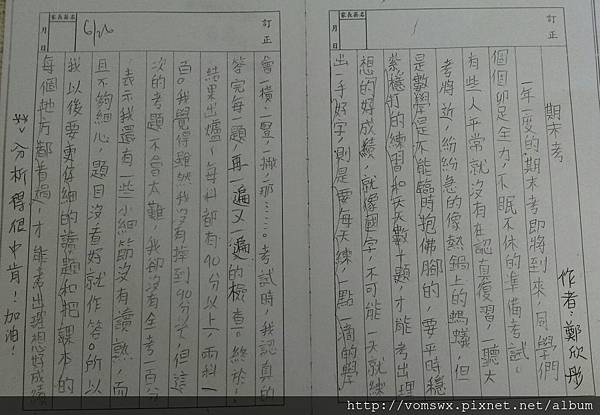 訂正
家長簽名
月
日
期末考
作者：鄭欣彤
一年一度的期末考即將到來，同學們
個個卯足全力，不眠不休的準備考試。
有些人平常就沒有在認真復習，一聽大
考將近，紛紛急的像熱鍋上的螞蟻，但
是數學是不能臨時抱佛腳的，要平時穩
紮穩打的練習和天天數十題，才能考出理
想的好成績，就像國字，不可能一天就練
出一手好字，則是要每天練，一點一滴的學
訂正
家長簽名
月
日
6/26
會一橫、一豎、一撇、那……。考試時，我認真的
答完每一題，再一遍又一遍的檢查。終於，
結果出爐，每科都有90分以上，兩科一
百。我覺得雖然我沒有掉到90分以下，但這
次的考題不會太難，我卻沒有全考一百分
，表示我還有一些小細節沒有讀熟，而
且不夠細心，題目沒看好就作答。所以
我以後要更仔細的讀題和把課本的
每個地方都看過，才能考出理想好成績
分析得很中肯！加油！
http://vomswx.pixnet.net/album